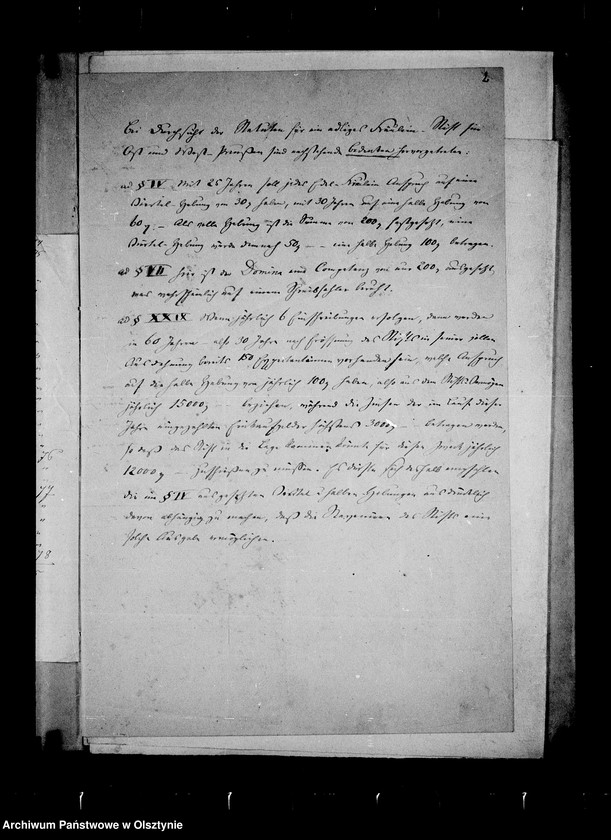 2
Bei Durchsicht der Statuten für ein adliges Fräulein-Stift für
Ost und West-Preußen sind nachstehende Bedenken hervorgetreten:
ad § IV. Mit 25 Jahren soll jedes Edel-Fräulein Anspruch auf eine
Viertel-Hebung von 30 haben, mit 30 Jahren auf eine halbe Hebung von
60 – Als volle Hebung ist die Summe von 200 festgesetzt, eine
Viertel-Hebung würde demnach 50 – eine halbe Hebung 100 betragen.
ad § VII hier ist der Domina eine Competenz von nur 200 ausgesetzt,
was wahrscheinlich auf einem Schreibfehler beruht.
ad § XXIX Wenn jährlich 6 Einschreibungen erfolgen, dann werden
in 60 Jahren – also 30 Jahre nach Eröffnung des Stifts in seiner vollen
Ausdehnung bereits 150 Expectantinnen vorhanden sein, welche Anspruch
auf die halbe Hebung von jährlich 100 haben, also aus dem Stifts
jährlich 15000 – beziehen, während die Zinsen der im Laufe dieser
Jahre eingezahlten Einkaufsgelder höchstens 3000 – betragen werden,
so daß das Stift in die Lage kommen könnte für diesen Zweck jährlich
12000 – zuschießen zu müssen. Es dürfte sich deshalb empfehlen
die im § IV ausgesetzten Viertel u halben Hebungen ausdrücklich
davon abhängig zu machen, daß die Revenüen des Stifts eine
solche Ausgabe ermöglichen.
76
77
78
Archiwum Państwowe w Olsztynie